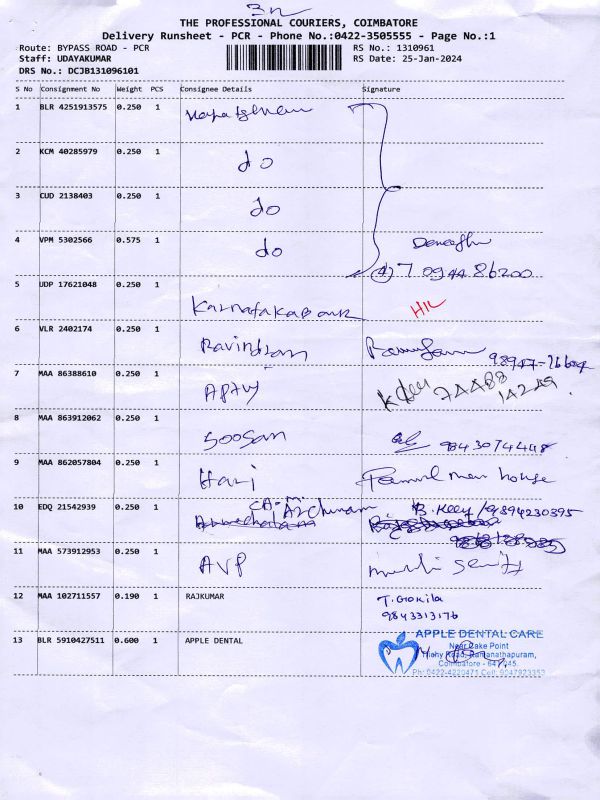 3n
THE PROFESSIONAL COURIERS, COIMBATORE
Delivery Runsheet - PCR - Phone No.:0422-3505555 - Page No.:1
Route: BYPASS ROAD - PCR RS No.: 1310961
Staff: UDAYAKUMAR RS Date: 25-Jan-2024
DRS No.: DCJB131096101
S No Consignment No Weight PCS Consignee Details Signature
1 BLR 4251913575 0.250 1
2 KCM 40285979 0.250 1 do
3 CUD 2138403 0.250 1 do
4 VPM 5302566 0.575 1 do
(4) 70944 86200
5 UDP 17621048 0.250 1 Karnataka Bank
6 VLR 2402174 0.250 1 Ravindran
7 MAA 86388610 0.250 1 74488
14249
8 MAA 863912062 0.250 1 Soosan
9 MAA 862057804 0.250 1 Hari house
10 EDQ 21542939 0.250 1 B. /9894230395
11 MAA 573912953 0.250 1 AVP
12 MAA 102711557 0.190 1 RAJKUMAR T. Gokila
9843313176
13 BLR 5910427511 0.600 1 APPLE DENTAL APPLE DENTAL CARE
Near Lake Point
Ramanathapuram,
Coimbatore - 641 045.
Ph: 0422-4220471 Cell: 9047923353